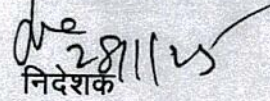 28/11/25
निदेशक